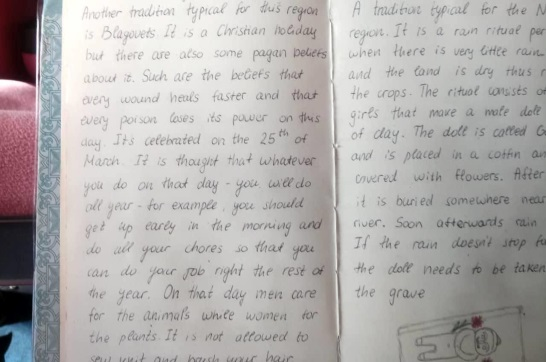 Another tradition typical for this region
is Blagovets. It is a Christian holiday
but there are also some pagan beliefs
about it. Such are the beliefs that
every wound heals faster and that
every poison loses its power on this
day. It's celebrated on the 25th of
March. It is thought that whatever
you do on that day - you will do
all year - for example, you should
get up early in the morning and
do all your chores so that you
can do your job right the rest of
the year. On that day men care
for the animals while women for
the plants. It is not allowed to
sew, knit and brush your hair
A tradition typical for the N
region. It is a rain ritual per
when there is very little rain
and the land is dry thus r
the crops. The ritual consists of
girls that make a male doll
of clay. The doll is called G
and is placed in a coffin an
covered with flowers. After
it is buried somewhere near
river. Soon afterwards rain
If the rain doesn't stop fu
the doll needs to be taken
the grave